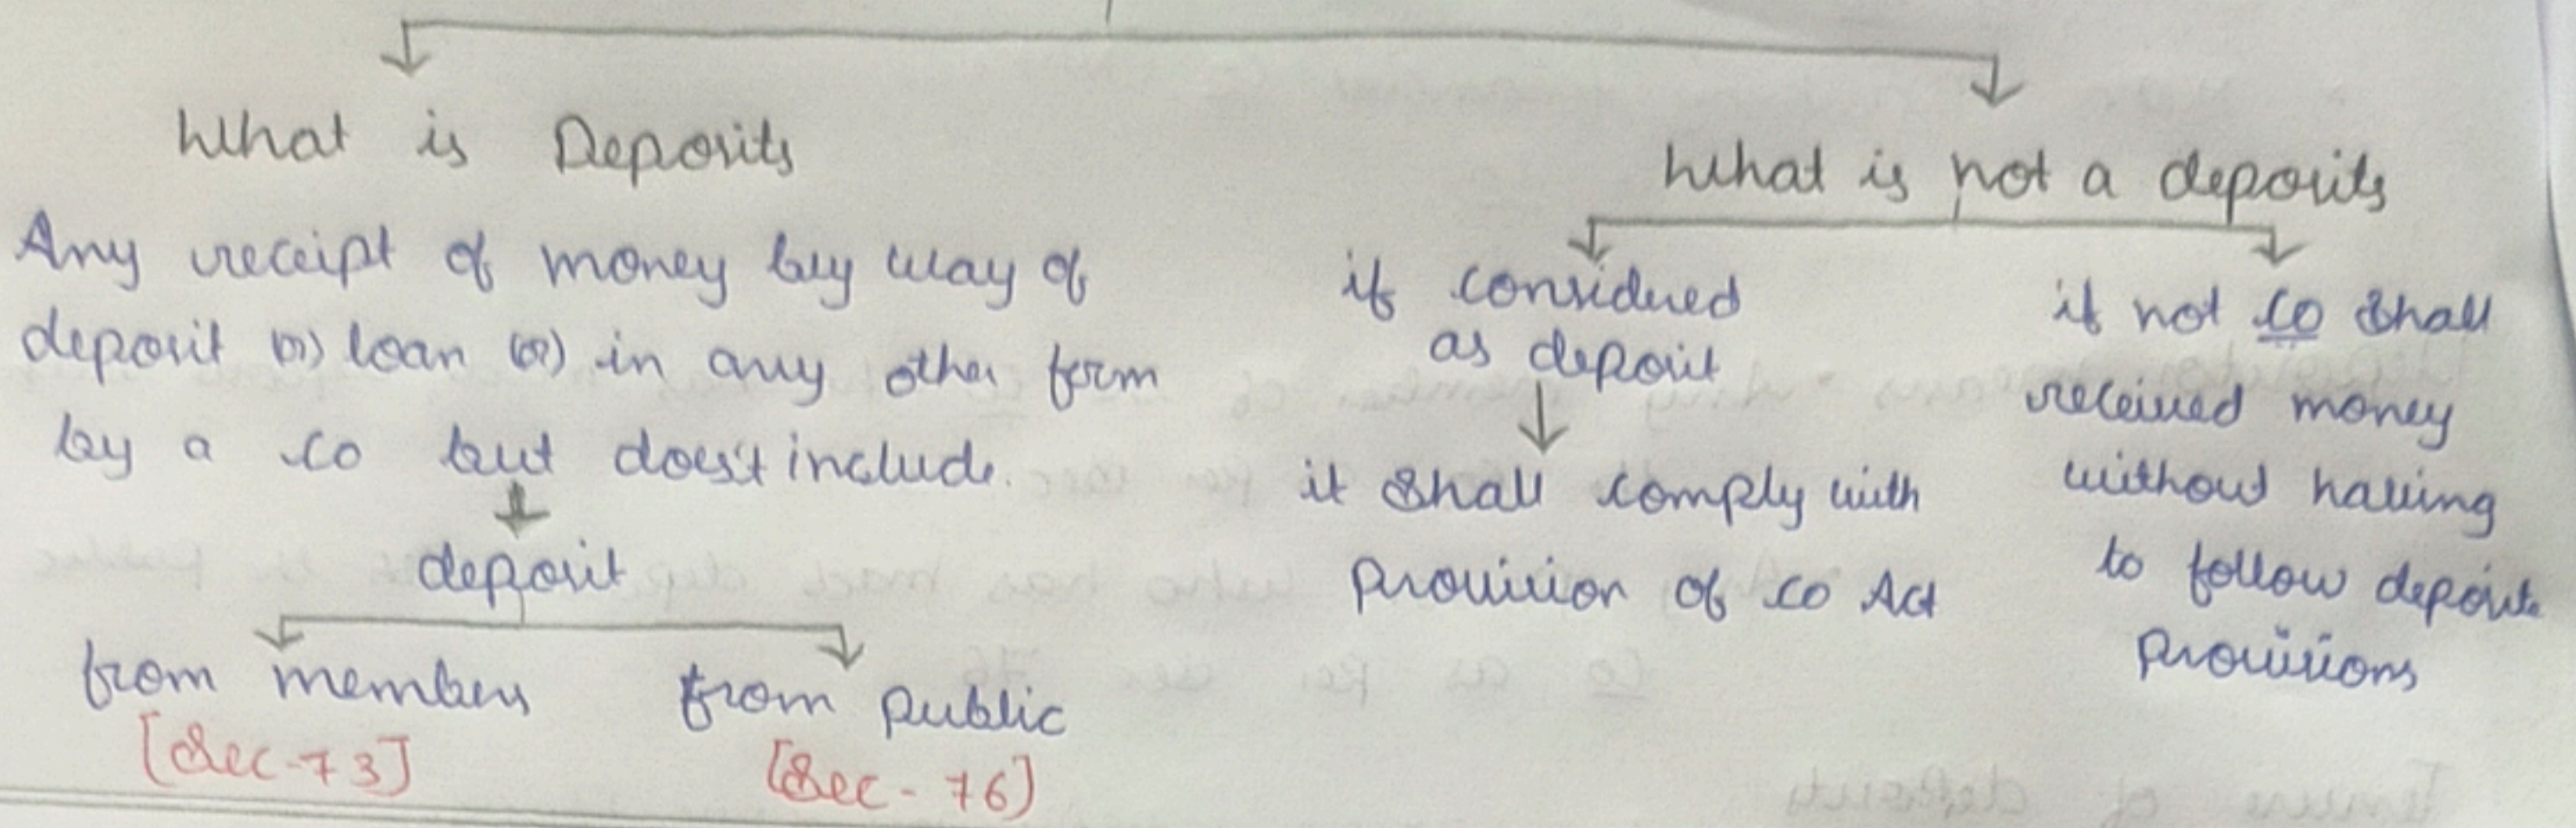 What is Deposits
Any receipt of money by way of
deposit (or) loan (or) in any other form
by a co but does't include.
deposit
from members
[Sec-73]
from public
[Sec-76]
What is not a deposits
if considered
as deposit
it shall comply with
Provision of co Act
if not co shall
received money
without having
to follow deposite
Provisions